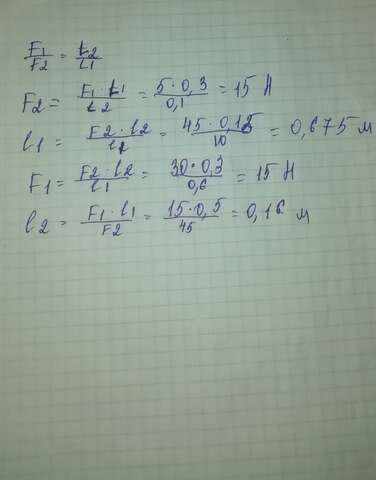 F1/F2 = L2/L1
F2 = F1·L1/L2 = 5·0,3/0,1 = 15 Н
l1 = F2·l2/l1 = 45·0,15/10 = 0,675 м
F1 = F2·l2/l1 = 30·0,3/0,6 = 15 Н
l2 = F1·l1/F2 = 15·0,5/45 = 0,16 м